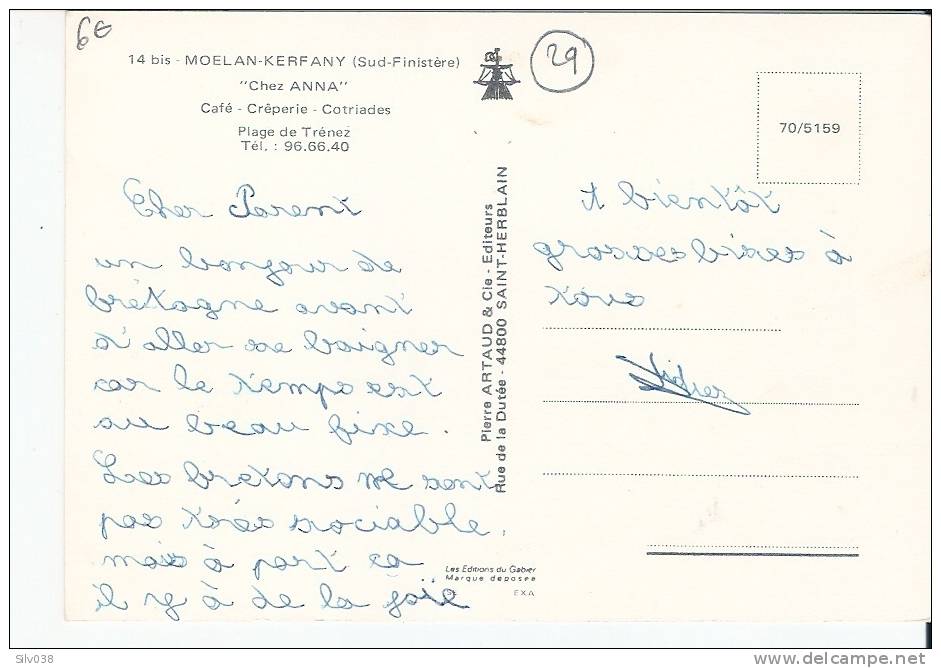 6€
29
14 bis - MOELAN-KERFANY (Sud-Finistère)
"Chez ANNA"
Café - Crêperie - Cotriades
Plage de Trénez
Tél. : 96.66.40
70/5159
Cher Parent
un bonjour de
bretagne avant
d'aller se baigner
car le temps est
au beau fixe.
Les bretons ne sont
pas très sociable,
mais à part ça
il y à de la joie
Pierre ARTAUD & Cie - Editeurs
Rue de la Dutée - 44800 SAINT-HERBLAIN
A bientôt
grosses bises à
tous
Didier
Les Editions du Gabier
Marque déposée
EXA
Silv038
www.delcampe.net